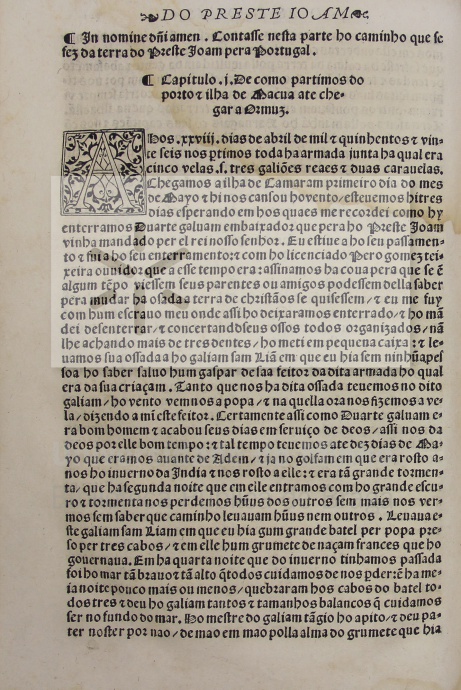 DO PRESTE IOAM
¶ In nomine dñi amen. Contasse nesta parte ho caminho que se
fez da terra do Preste Joam pera Portugal.
¶ Capitulo.j. De como partimos do
porto ⁊ ilha de Macua ate che-
gar a Ormuz.
Ahos .xxviij. dias de abril de mil ⁊ quinhentos ⁊ vin-
te seis nos ptimos toda ha armada junta ha qual era
cinco velas .s. tres galiões reaes ⁊ duas carauelas.
Chegamos a ilha de Camaram primeiro dia do mes
de Mayo ⁊ hi nos cansou ho vento/ esteuemos hi tres
dias esperando em hos quaes me recordei como hy
enterramos Duarte galuam embaixador que pera ho Preste Joam
vinha mandado per el rei nosso senhor. Eu estiue a ho seu passamen-
to ⁊ fui a ho seu enterramento: ⁊ com ho licenciado Pero gomez tei-
xeira ouuidor que a esse tempo era: assinamos ha coua pera que se ẽ
algum tẽpo viessem seus parentes ou amigos podessem della saber
pera mudar ha osada a terra de christãos se quisessem/ ⁊ eu me fuy
com hum escrauo meu onde assi ho deixaramos enterrado/ ⁊ ho mã
dei desenterrar/ ⁊ concertand seus ossos todos organizados/ nã
lhe achando mais de tres dentes/ ho meti em pequena caixa: ⁊ le-
uamos sua ossada a ho galiam sam Liã em que eu hia sem ninhũa pes
soa ho saber saluo hum gaspar de saa feitor da dita armada ho qual
era da sua criaçam. Tanto que nos ha dita ossada teuemos no dito
galiam/ ho vento vemnos a popa/ ⁊ na quella ora nos fizemos a ve-
la/ dizendo a mi este feitor. Certamente assi como Duarte galuam e-
ra bom homem ⁊ acabou seus dias em seruiço de deos/ assi nos da
deos por elle bom tempo: ⁊ tal tempo teuemos ate dez dias de Ma-
yo que eramos auante de Adem/ ⁊ ja no golfam em que era rosto a-
nos ho inuerno da India ⁊ nos rosto a elle: ⁊ era tã grande tormen-
ta/ que ha segunda noite que em elle entramos com ho grande escu-
ro ⁊ tormenta nos perdemos hũus dos outros sem mais nos ver-
mos sem saber que caminho leuauam hũus nem outros. Leuaua e-
ste galiam sam Liam em que eu hia gum grande batel per popa pre-
so per tres cabos/ ⁊ em elle hum grumete de naçam frances que ho
gouernaua. Em ha quarta noite que do inuerno tinhamos passada
foi ho mar tã brauo ⁊ tã alto q̃ todos cuidamos de nos pder: ⁊ ha me-
ia noite pouco mais ou menos/ quebraram hos cabos do batel to-
dos tres ⁊ deu ho galiam tantos ⁊ tamanhos balancos q̃ cuidamos
ser no fundo do mar. Ho mestre do galiam tãgio ho apito/ ⁊ deu pa-
ter noster por nao/ de mao em mao polla alma do grumete que hia